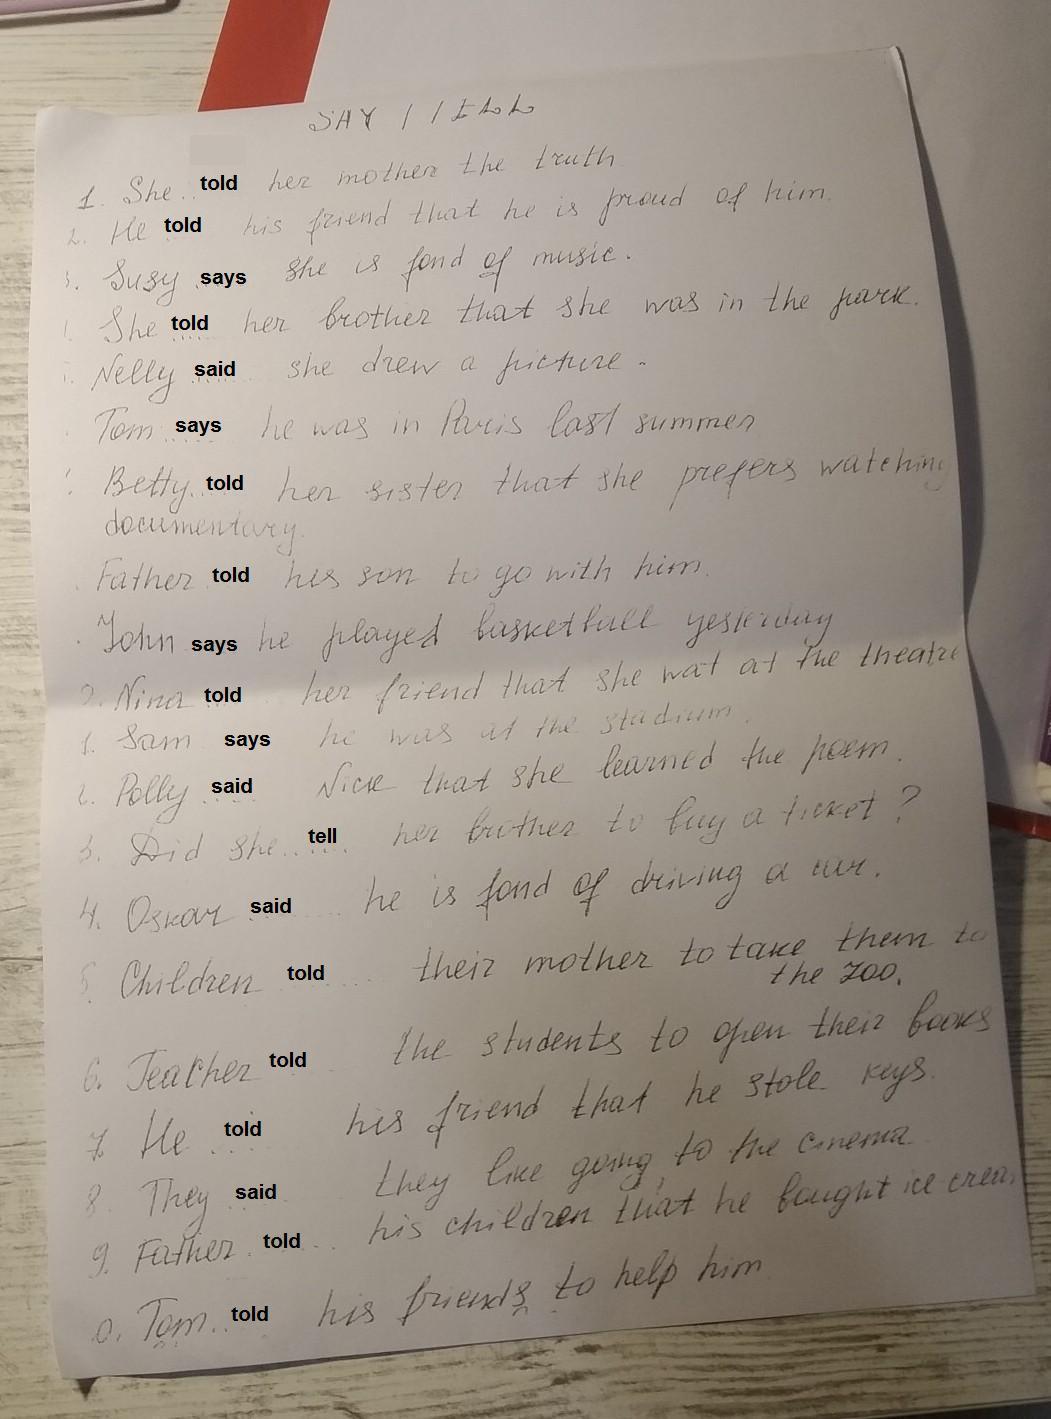 SAY / TELL
1. She.. told her mother the truth
2. He told his friend that he is proud of him.
3. Susy says she is fond of music.
She told her brother that she was in the park.
Nelly said she drew a picture.
Tom says he was in Paris last summer
Betty.. told her sister that she prefers watching
documentary.
Father told his son to go with him.
John says he played basketball yesterday
Nina told her friend that she wat at the theatre
1. Sam says he was at the stadium.
2. Polly said Nick that she learned the poem.
3. Did she... tell her brother to buy a ticket?
4. Oskar said he is fond of driving a car.
5. Children told .... their mother to take them to
the zoo.
6. Teacher told the students to open their books
7. He told his friend that he stole keys.
8. They said they like going to the cinema
9. Father. told ... his children that he bought ice cream
0. Tom.. told his friends to help him